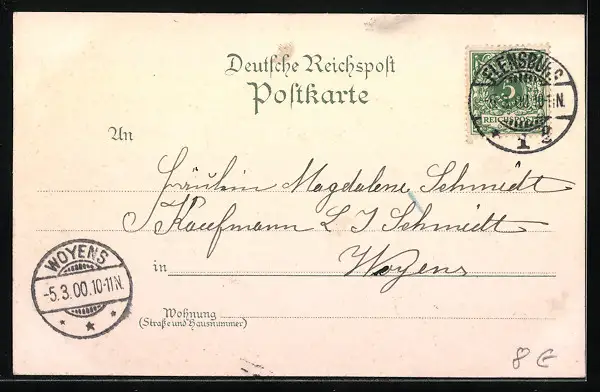 Deutsche Reichspost
Postkarte
FLENSBURG
5
REICHSPOST
1
An
Fräulein Magdalene Schmidt
Kaufmann L J Schmidt
in Woyens
WOYENS
-5.3.00.10-11N.
Wohnung
(Straße und Hausnummer)
8 €